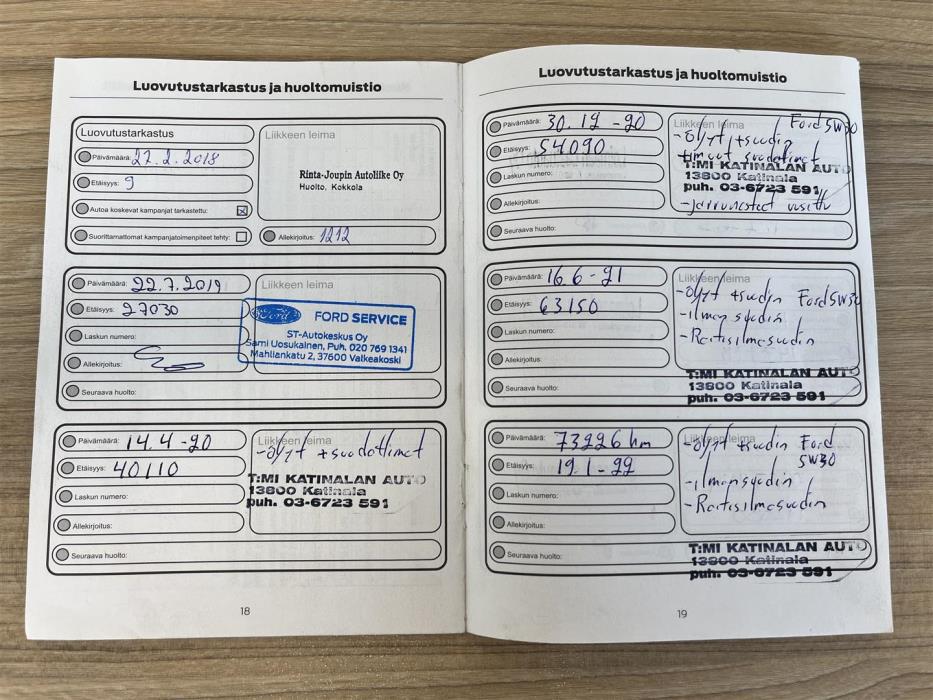 Luovutustarkastus ja huoltomuistio
Luovutustarkastus
Päivämäärä: 22.2.2018
Etäisyys: 9
Autoa koskevat kampanjat tarkastettu: x
Suorittamattomat kampanjatoimenpiteet tehty:
Liikkeen leima
Rinta-Joupin Autoliike Oy
Huolto, Kokkola
Allekirjoitus: 1212
Päivämäärä: 22.7.2019
Etäisyys: 27030
Laskun numero:
Allekirjoitus:
Seuraava huolto:
Liikkeen leima
Ford FORD SERVICE
ST-Autokeskus Oy
Sami Uosukainen, Puh. 020 769 1341
Mahliankatu 2, 37600 Valkeakoski
Päivämäärä: 14.4-20
Etäisyys: 40110
Laskun numero:
Allekirjoitus:
Seuraava huolto:
Liikkeen leima
-öljyt +suodattimet
T:MI KATINALAN AUTO
13800 Katinala
puh. 03-6723 591
18
Luovutustarkastus ja huoltomuistio
Päivämäärä: 30.12-20
Etäisyys: 54090
Laskun numero:
Allekirjoitus:
Seuraava huolto:
Liikkeen leima
Ford 5W30
-öljyt +suodin
T:MI KATINALAN AUTO
13800 Katinala
puh. 03-6723 591
-jarrunesteet
Päivämäärä: 16.6-21
Etäisyys: 63150
Laskun numero:
Allekirjoitus:
Seuraava huolto:
Liikkeen leima
-öljyt +suodin Ford 5W30
-ilmansuodin
-Raitisilmasuodin
T:MI KATINALAN AUTO
13800 Katinala
puh. 03-6723 591
Päivämäärä: 73226 km
Etäisyys: 19.1-22
Laskun numero:
Allekirjoitus:
Seuraava huolto:
Liikkeen leima
-öljyt +suodin Ford
5W30
-ilmansuodin
-Raitisilmasuodin
T:MI KATINALAN AUTO
13800 Katinala
puh. 03-6723 591
19